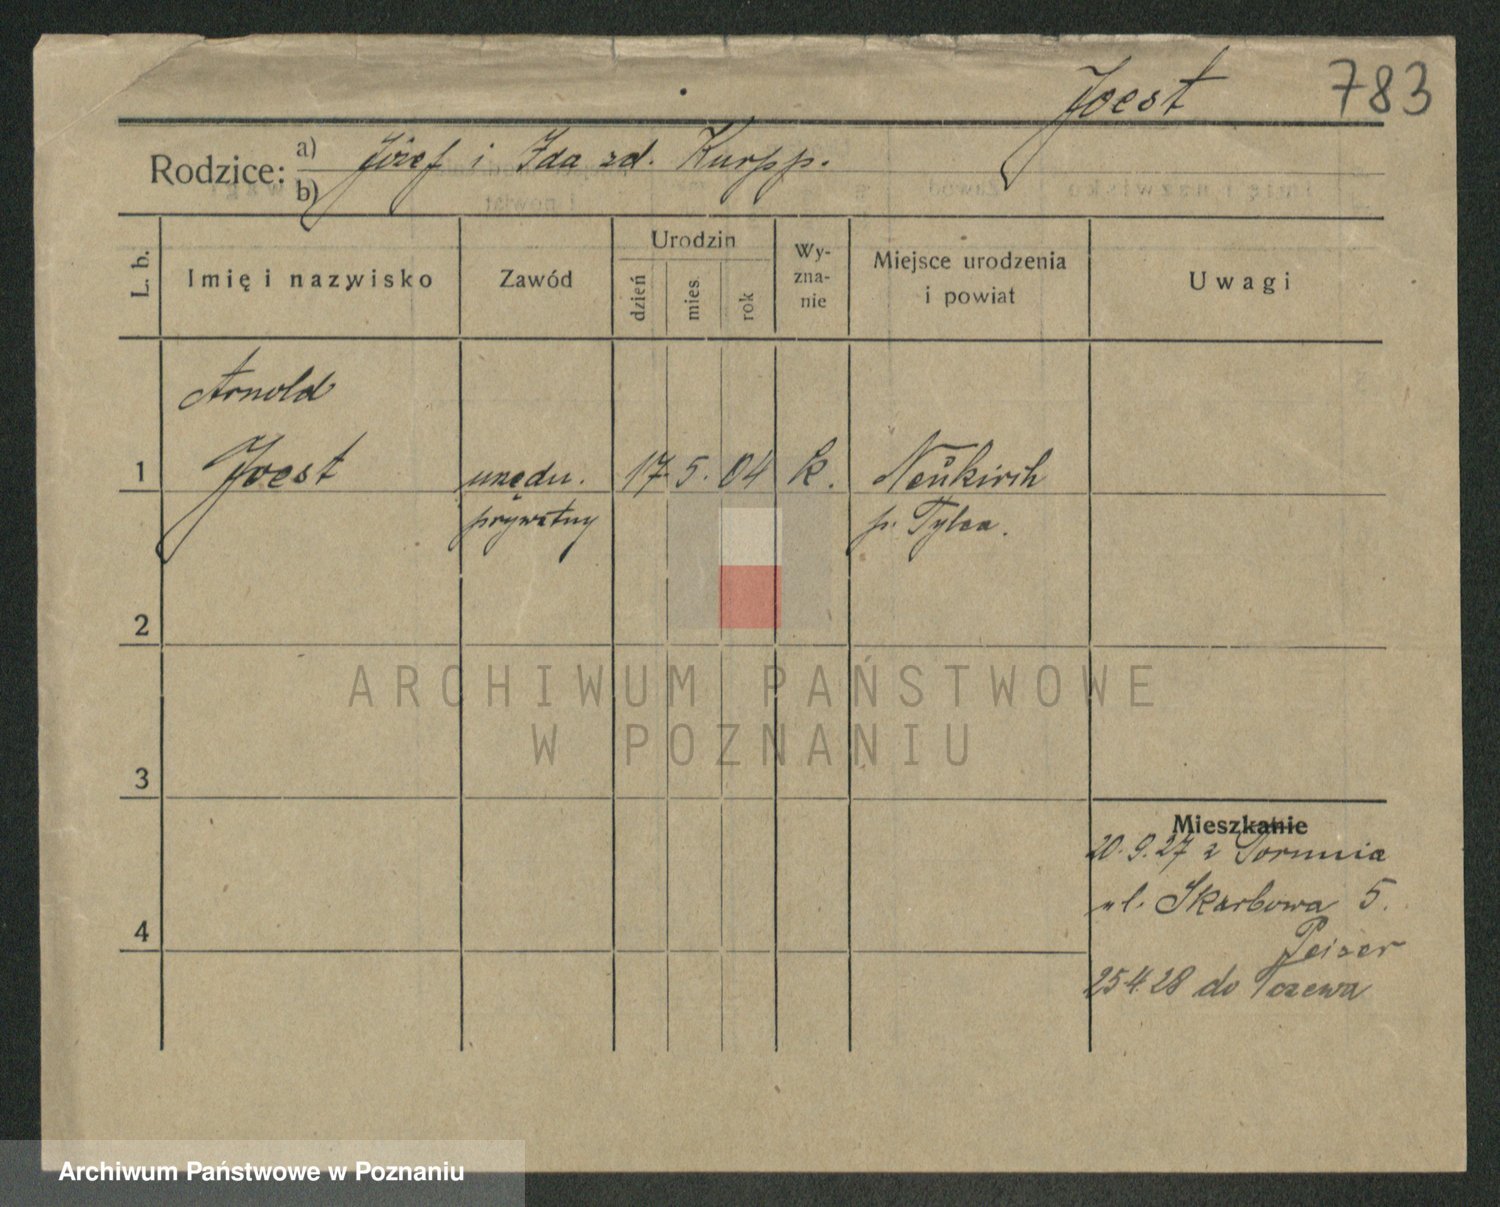 Joest 783
Rodzice: a) Józef i Ida zd. Kurpp.
b)
L. b. Imię i nazwisko Zawód Urodzin dzień mies. rok Wy-zna-nie Miejsce urodzenia i powiat Uwagi
Arnold
1 Joest urzędn. 17. 5. 04 k. Neukirch
prywatny p. Tylca.
2
ARCHIWUM PAŃSTWOWE
W POZNANIU
3
Mieszkanie
20. 9. 27 z Torunia
ul. Skarbowa 5.
4
Peiser
25 4. 28 do Tczewa
Archiwum Państwowe w Poznaniu